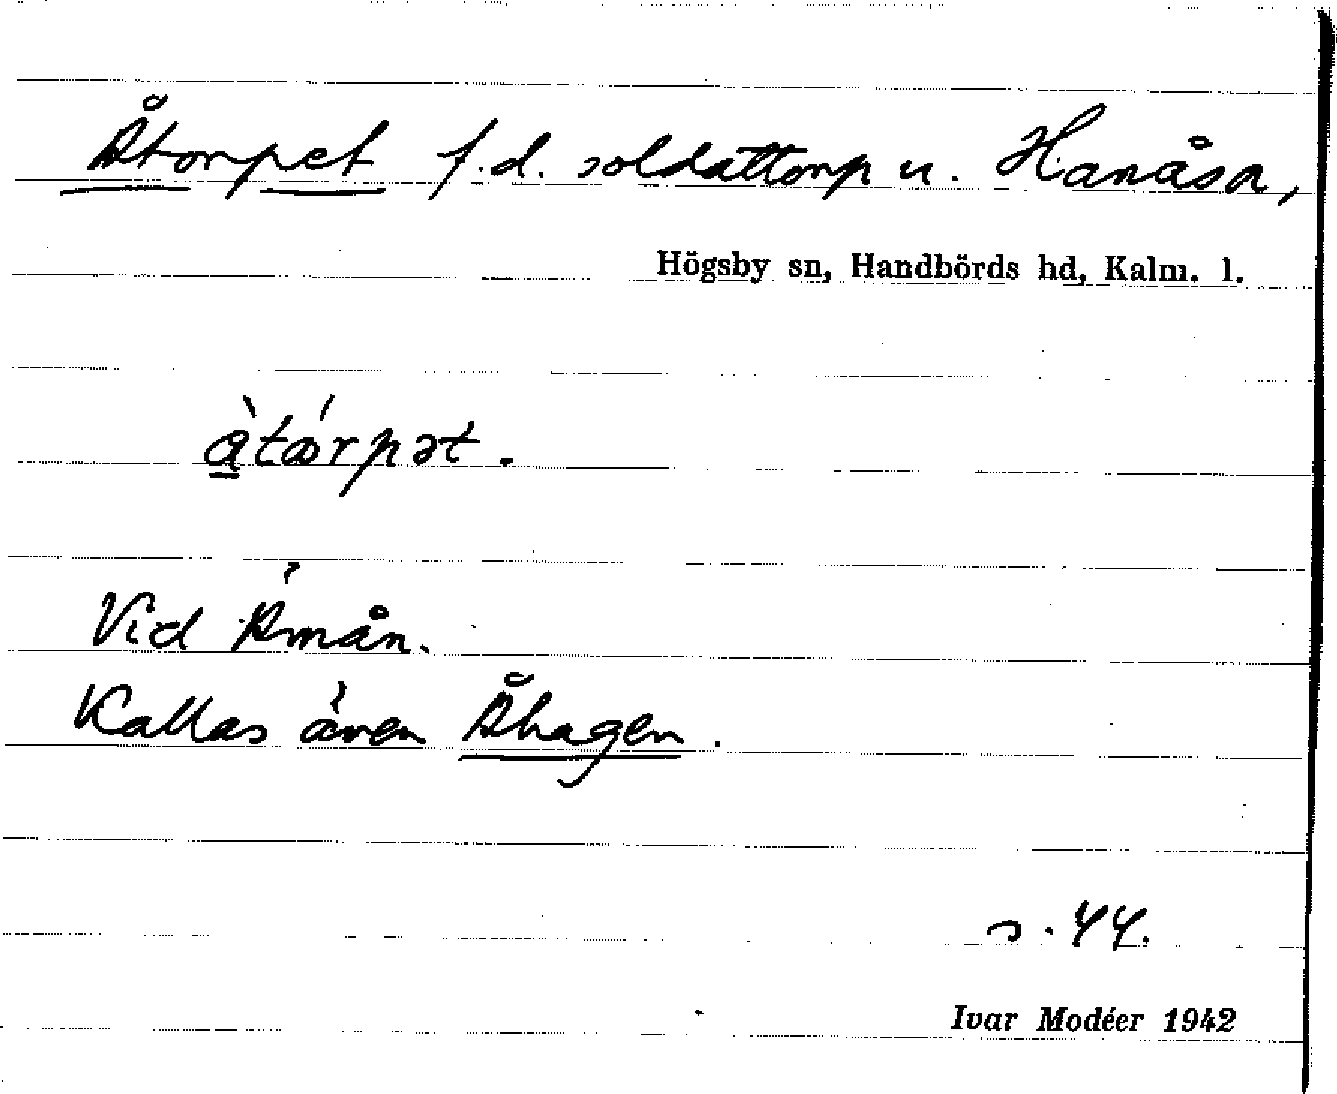 Åtorpet f.d. soldattorp u. Hanåsa,
Högsby sn, Handbörds hd, Kalm. l.
Vid Åmån.
Kallas även Åhagen.
s. 44.
Ivar Modéer 1942